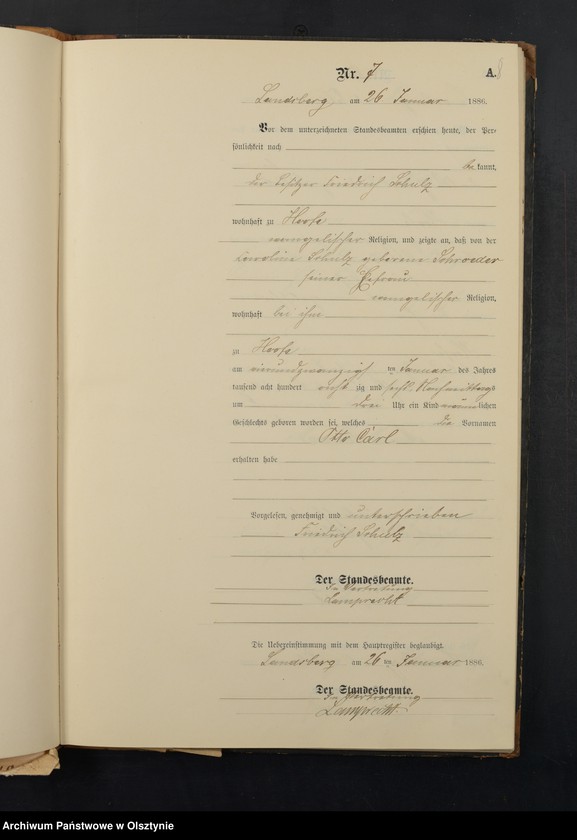 Nr. 7
A.
Landsberg am 26 Januar 1886.
Vor dem unterzeichneten Standesbeamten erschien heute, der Per-
sönlichkeit nach
be kannt,
der Besitzer Friedrich Schulz
wohnhaft zu Hoofe
evangelischer Religion, und zeigte an, daß von der
Caroline Schulz geborene Schroeder
seiner Ehefrau
evangelischer Religion,
wohnhaft bei ihm
zu Hoofe
am vierundzwanzigsten Januar des Jahres
tausend acht hundert acht zig und sechs Nachmittags
um drei Uhr ein Kind männlichen
Geschlechts geboren worden sei, welches die Vornamen
Otto Carl
erhalten habe
Vorgelesen, genehmigt und unterschrieben
Friedrich Schulz
Der Standesbeamte.
In Vertretung
Lamprecht
Die Uebereinstimmung mit dem Hauptregister beglaubigt.
Landsberg am 26 ten Januar 1886.
Der Standesbeamte.
In Vertretung
Lamprecht.
Archiwum Państwowe w Olsztynie